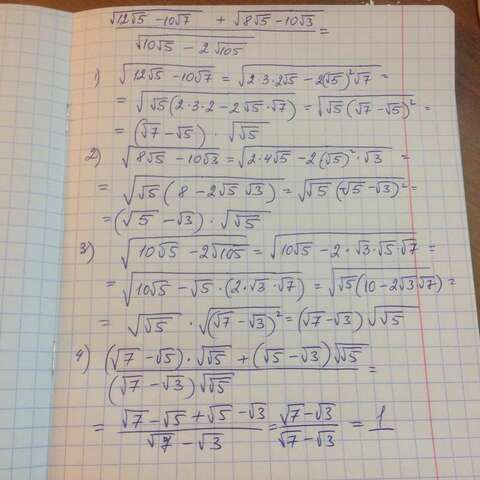 (√(12√5 − 10√7) + √(8√5 − 10√3)) / √(10√5 − 2√105) =
1) √(12√5 − 10√7) = √(2·3·2√5 − 2(√5)²√7) =
= √(√5(2·3·2 − 2√5·√7)) = √(√5(√7 − √5)²) =
= (√7 − √5) · √√5
2) √(8√5 − 10√3) = √(2·4√5 − 2(√5)²·√3) =
= √(√5(8 − 2√5√3)) = √(√5(√5 − √3)²) =
= (√5 − √3) · √√5
3) √(10√5 − 2√105) = √(10√5 − 2·√3·√5·√7) =
= √(10√5 − √5·(2·√3·√7)) = √(√5(10 − 2√3√7)) =
= √√5 · √((√7 − √3)²) = (√7 − √3)√√5
4) ((√7 − √5)·√√5 + (√5 − √3)√√5) / ((√7 − √3)√√5) =
= (√7 − √5 + √5 − √3) / (√7 − √3) = (√7 − √3) / (√7 − √3) = 1